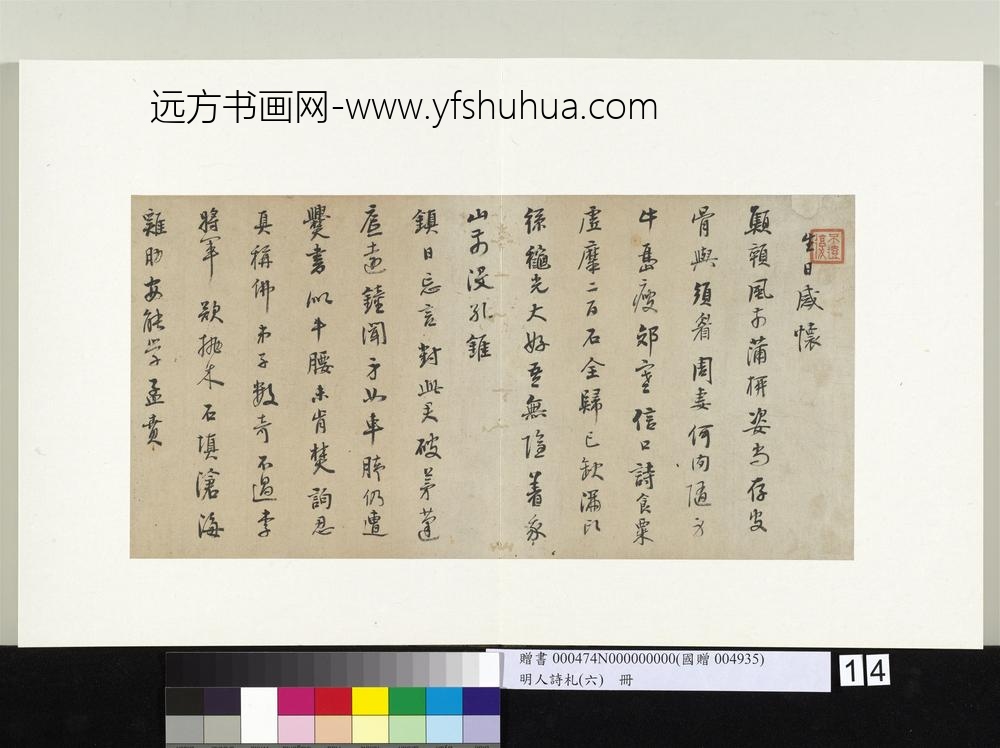 远方书画网-www.yfshuhua.com
生日感懷
顛領風前蒲柳姿尚存皮
骨與鬚眉周妻何肉隨
牛島瘦郊寒信口詩食粟
虛糜二百石全歸已欽滿
孫龜光大好吾無隱著
山前沒孔錐
鎮日忘言對此君破茅蓬
聞方如車肺仍遭
爨書似牛腰未肯焚詢
真稱佛弟子數奇不過李
將軍欲挑木石填滄海
雞肋安能學孟賁
贈書 000474N000000000(國贈 004935)
明人詩札(六) 冊
14